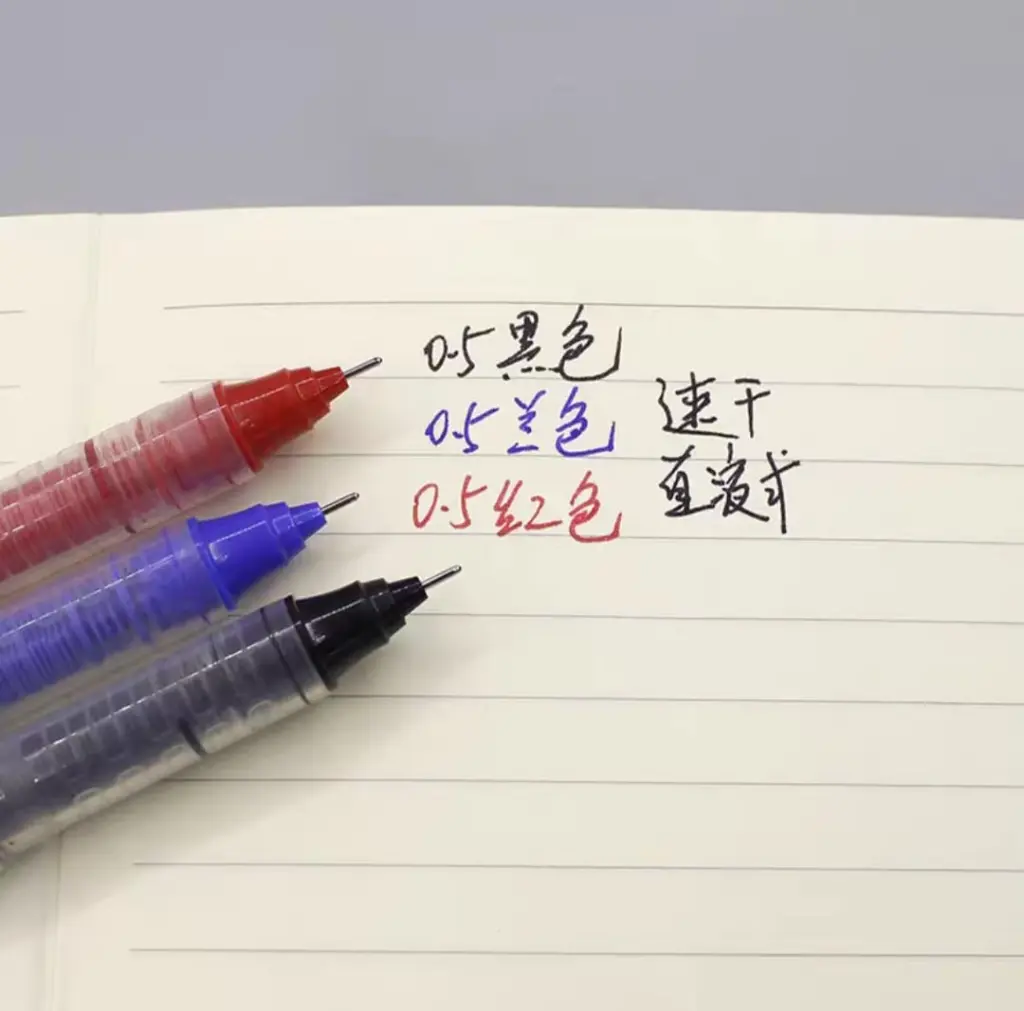 0.5黑色
0.5兰色
0.5红色
速干
直液式